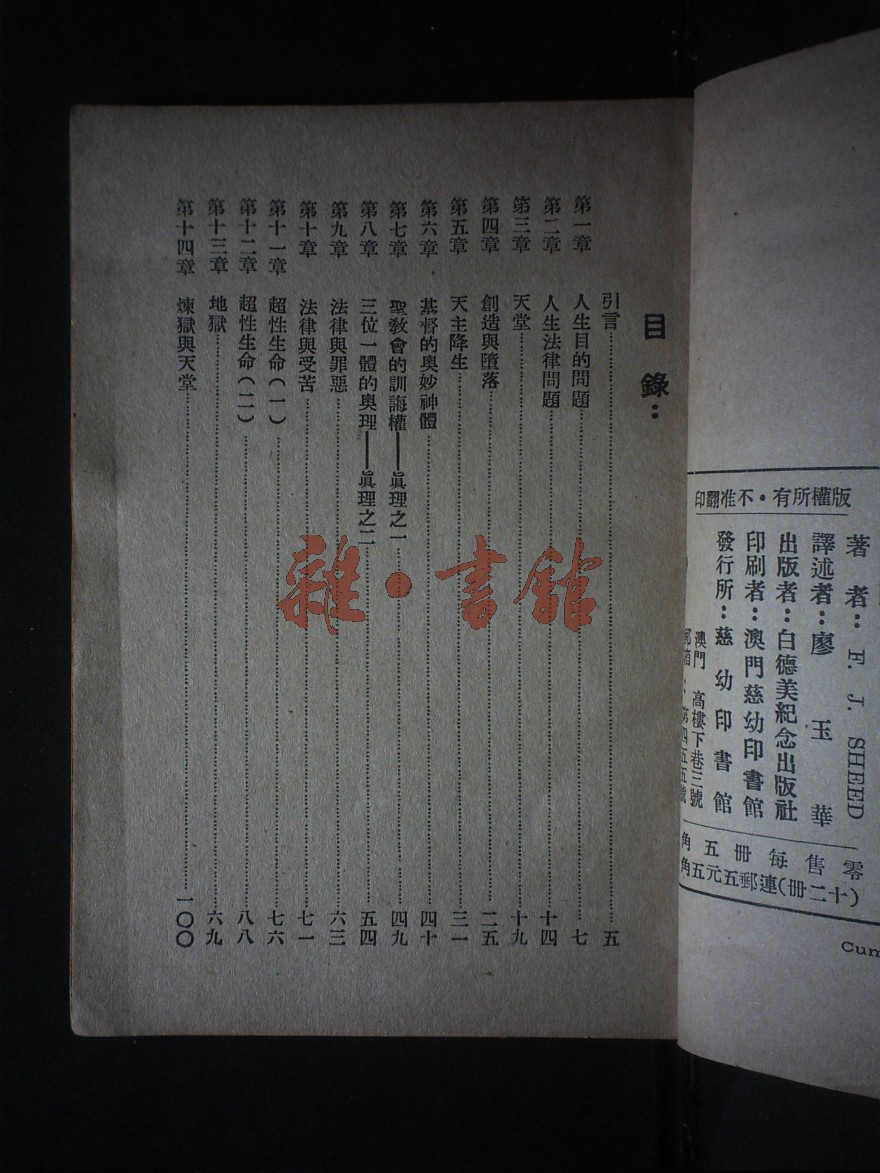 版權所有·不准翻印
著者：F. J. SHEED
譯述者：廖玉華
出版者：白德美紀念出版社
印刷者：澳門慈幼印書館
發行所：慈幼印書館
澳門 高樓下巷三號
郵箱：第四五五號
零售每冊五角
（十二冊）連郵五元五角
Cum
目錄：
引言 五
第一章 人生目的問題 七
第二章 人生法律問題 十四
第三章 天堂 十九
第四章 創造與墮落 二五
第五章 天主降生 三一
第六章 基督的奧妙神體 四十
第七章 聖教會的訓誨權——眞理之一 四九
第八章 三位一體的奧理——眞理之二 五四
第九章 法律與罪惡 六三
第十章 法律與受苦 七一
第十一章 超性生命（一） 七六
第十二章 超性生命（二） 八八
第十三章 地獄 六九
第十四章 煉獄與天堂 一〇〇
雜·書館